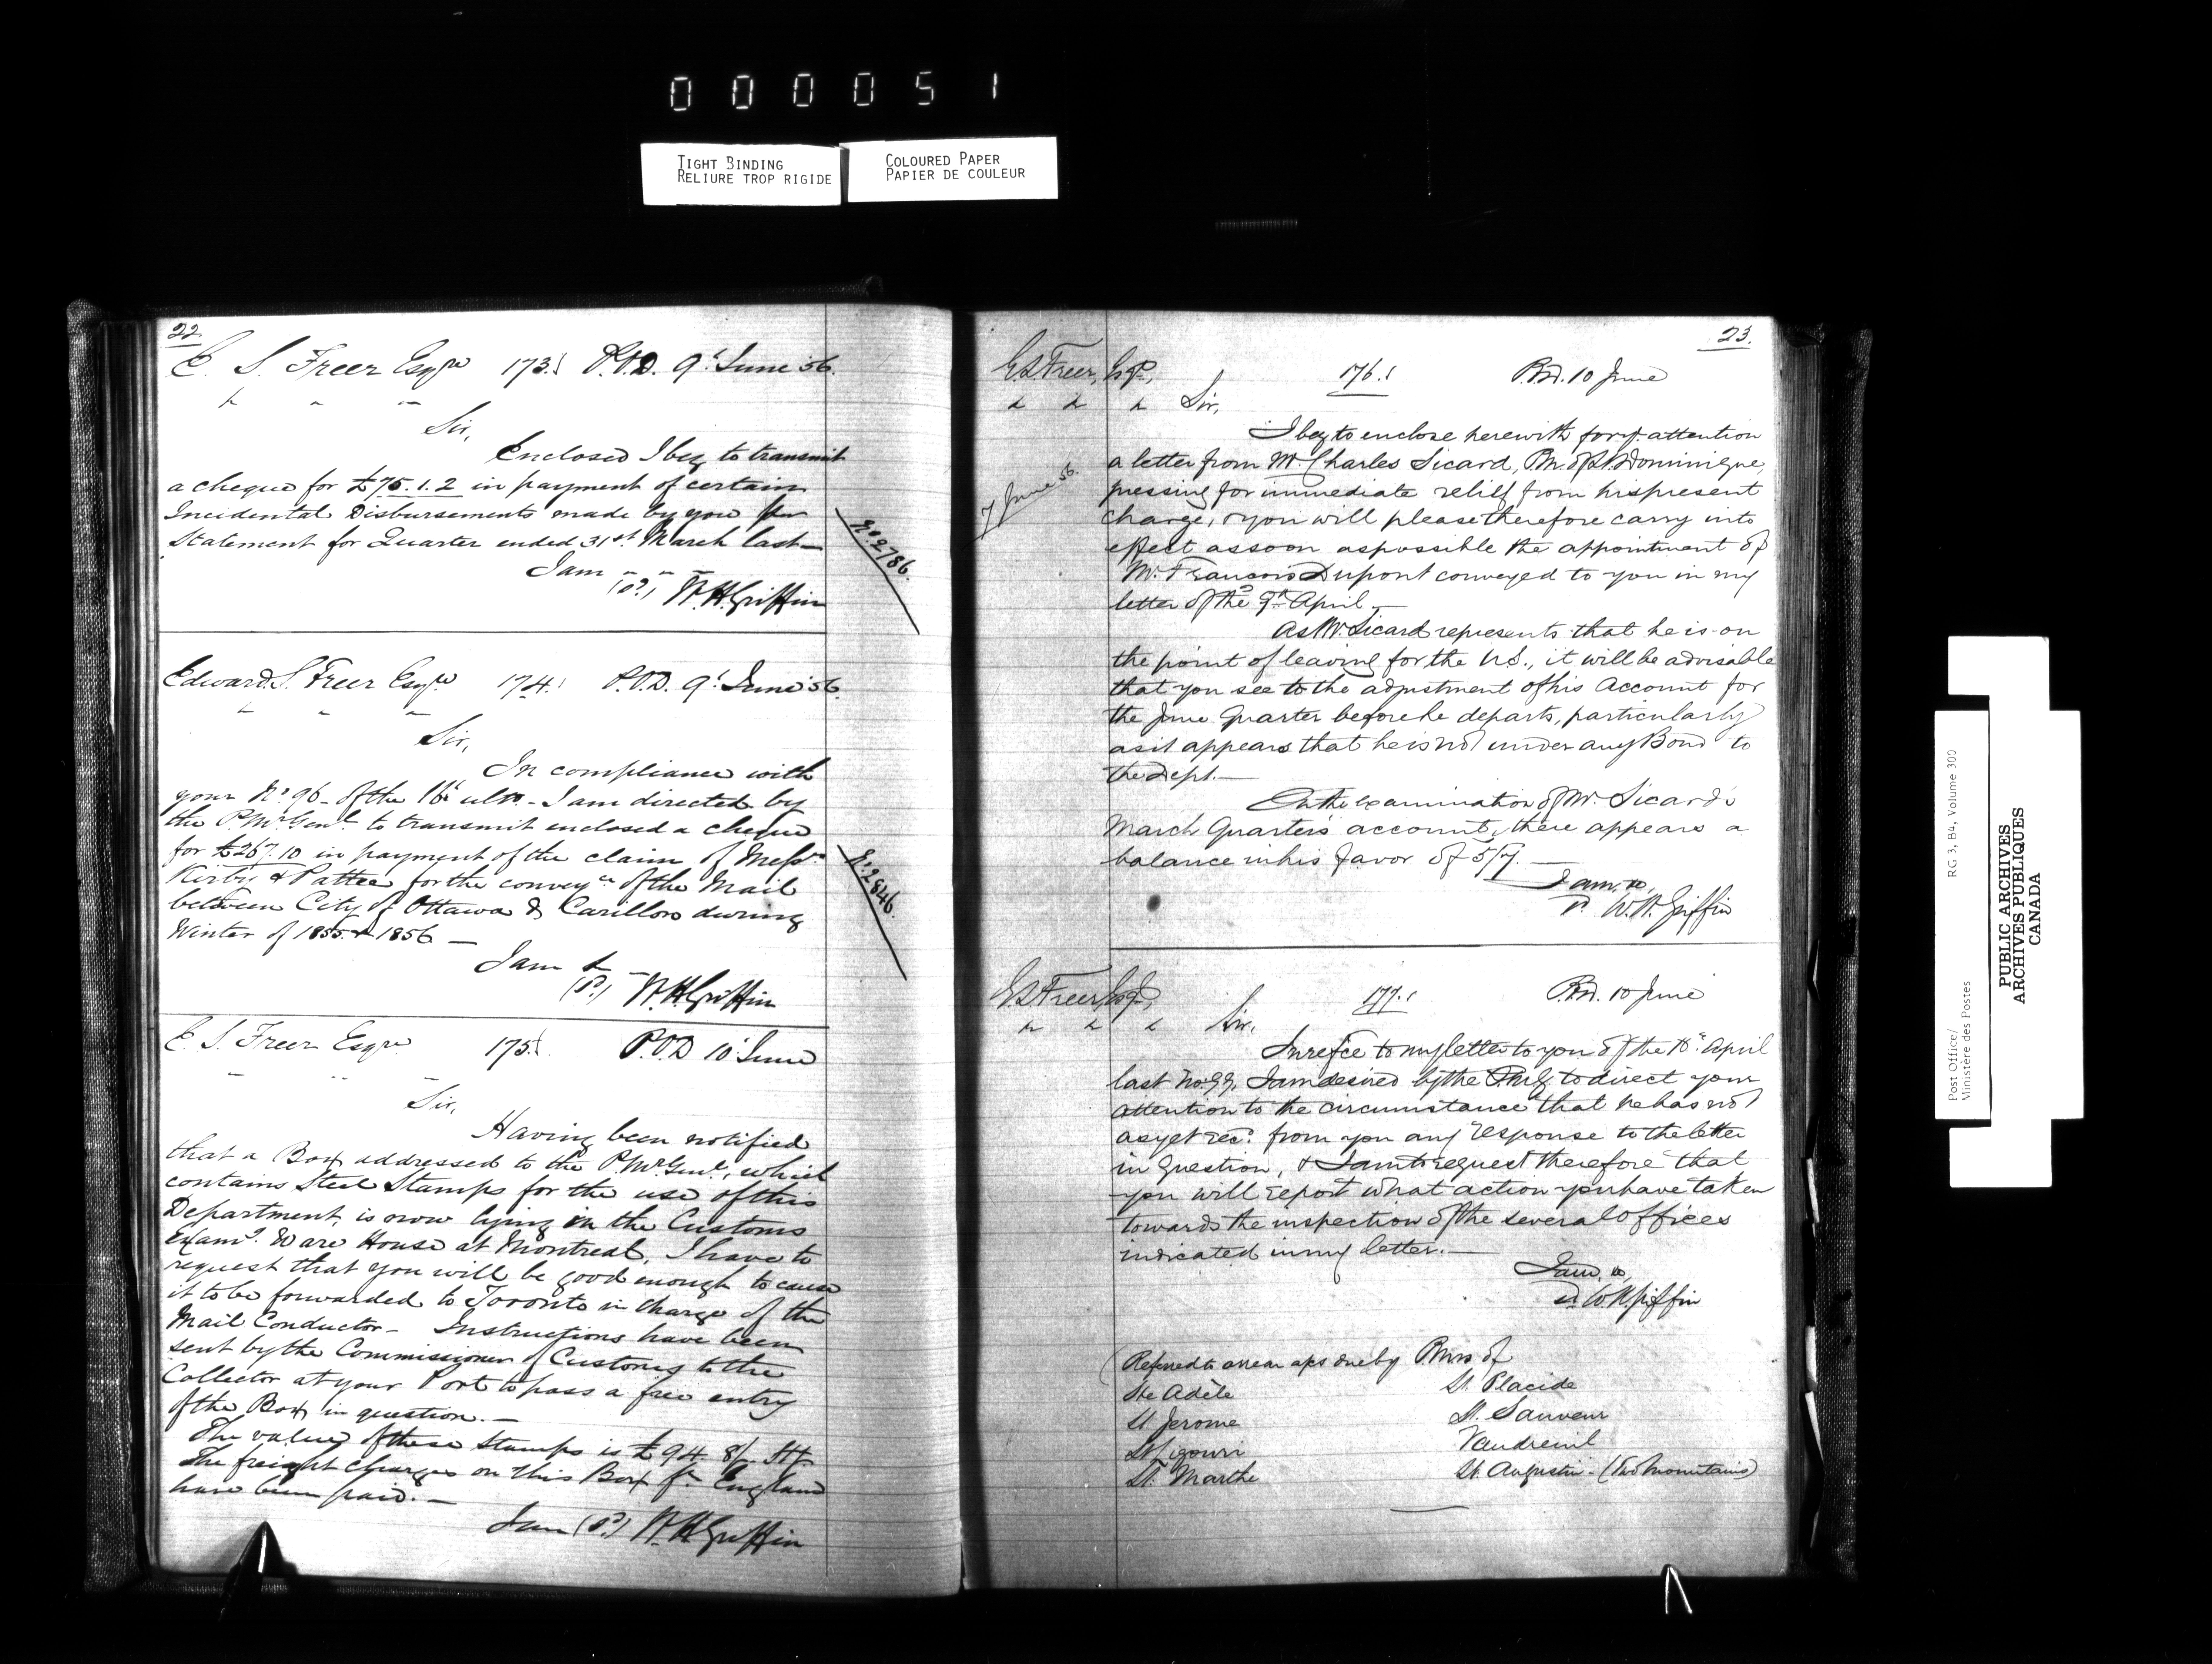 0 0 0 0 5 1
TIGHT BINDING
RELIURE TROP RIGIDE
COLOURED PAPER
PAPIER DE COULEUR
22.
E. S. Freer Esqre 173. P.O.D. 9t June 56.
Sir,
Enclosed I beg to transmit
a cheque for £75.1.2 in payment of certain
Incidental Disbursements made by you per
Statement for Quarter ended 31st March last—
I am
(sd) W. H. Griffin
No 2786.
Edward S. Freer Esqre 174. P.O.D. 9t June 56.
Sir,
In compliance with
your No 96 of the 16t ulto - I am directed by
the P. Mr Genl to transmit enclosed a cheque
for £267.10 in payment of the claim of Messrs
Kirby & Pattee for the conveyce of the Mail
between City of Ottawa & Carillon during
Winter of 1855 & 1856 —
I am &
(sd) W. H. Griffin
No 2846.
E. S. Freer Esqre 175. P.O.D 10t June
Sir,
Having been notified
that a Box addressed to the P. Mr Genl, which
contains Steel Stamps for the use of this
Department, is now lying in the Customs
Examg. Ware House at Montreal, I have to
request that you will be good enough to cause
it to be forwarded to Toronto in charge of the
Mail Conductor — Instructions have been
sent by the Commissioner of Customs to the
Collector at your Port to pass a free entry
of the Box in question. —
The value of these Stamps is £94. 8/- Stg.
The freight charges on this Box fm England
have been paid. —
I am (sd) W. H. Griffin
23.
E. S. Freer, Esqr, 176. P.O.D. 10 June
Sir,
I beg to enclose herewith for yr. attention
a letter from Mr. Charles Sicard, P.M. of St. Dominique,
7 June 56.
pressing for immediate relief from his present
charge, & you will please therefore carry into
effect as soon as possible the appointment of
Mr. Francois Dupont conveyed to you in my
letter of the 9th April —
As Mr. Sicard represents that he is on
the point of leaving for the U.S., it will be advisable
that you see to the adjustment of his Account for
the June Quarter before he departs, particularly
as it appears that he is not under any Bond to
the Dept. —
On the examination of Mr. Sicard's
March Quarter's account, there appears a
balance in his favor of 5/7. —
I am, &c,
sd W. H. Griffin
E. S. Freer, Esqr, 177. P.O.D. 10 June
Sir,
In refce to my letter to you of the 18t April
last No. 99, I am desired by the P.M.G. to direct your
attention to the circumstance that he has not
as yet recd. from you any response to the letter
in question, & I am to request therefore that
you will report what action you have taken
towards the inspection of the several offices
indicated in my letter. —
I am, &c,
sd W. H. Griffin
(Referred to arrear a/cs due by P. Mrs of
Ste Adèle St. Placide
St Jerome St. Sauveur
St Ligouri Vaudreuil
St. Marthe St. Augustin - (Two Mountains)
Post Office/ RG 3, B4, Volume 300
Ministère des Postes
PUBLIC ARCHIVES
ARCHIVES PUBLIQUES
CANADA